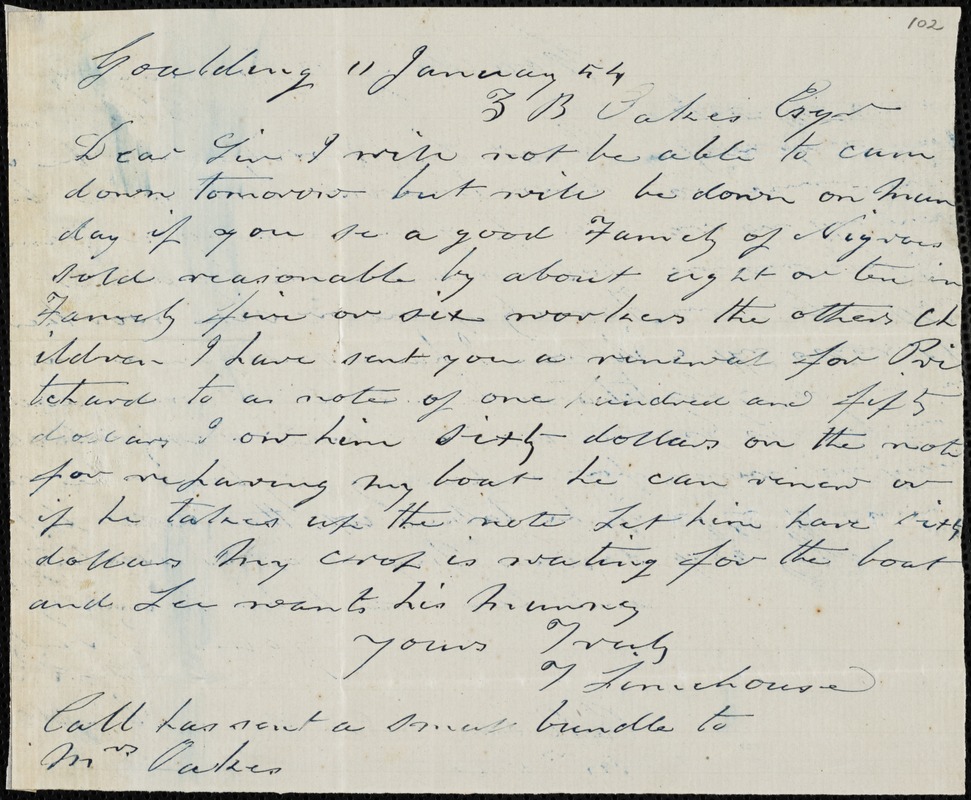 102
Goulding 11 January 54
Z B Oakes Esqr
Dear Sir I will not be able to cum
down tomorow but will be down on Mun
day if you se a good Family of Nigroes
sold reasonable by about eight or ten in
Family five or six workers the others ch
ildren I have sent you a renewal for Pri
tchard to as note of one hundred and fifty
dollars I ow him sixty dollars on the note
for reparing my boat he can renew or
if he takes up the note Let him have sixty
dollars My crop is wating for the boat
and Lee wants his Munney
yours Truly
T Limehouse
Call has sent a small bundle to
Mrs Oakes